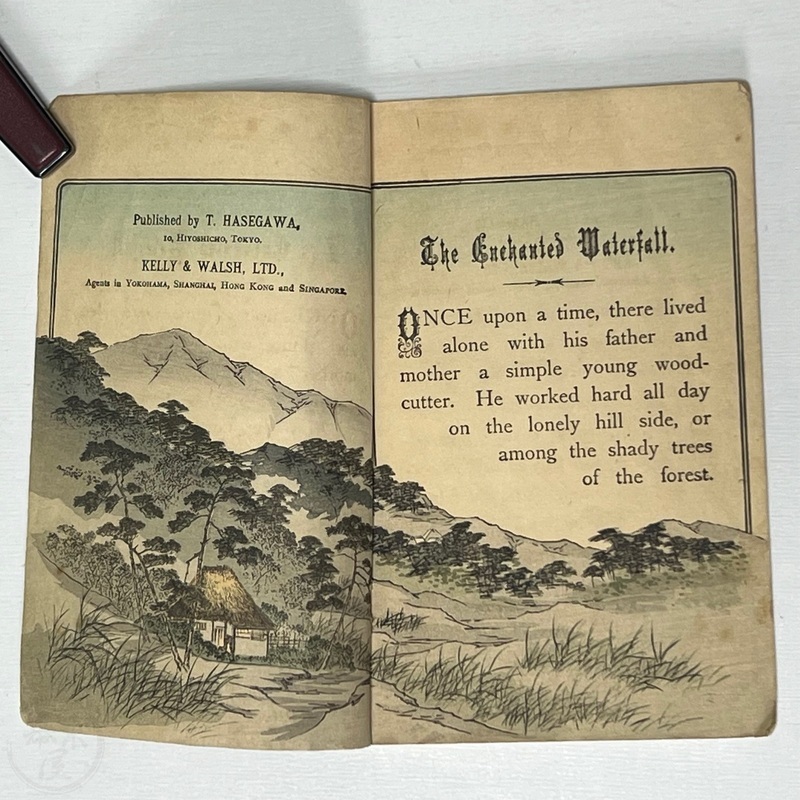 Published by T. HASEGAWA,
10, HIYOSHICHO, TOKYO.
KELLY & WALSH, LTD.,
Agents in YOKOHAMA, SHANGHAI, HONG KONG and SINGAPORE.
The Enchanted Waterfall.
ONCE upon a time, there lived
alone with his father and
mother a simple young wood-
cutter. He worked hard all day
on the lonely hill side, or
among the shady trees
of the forest.